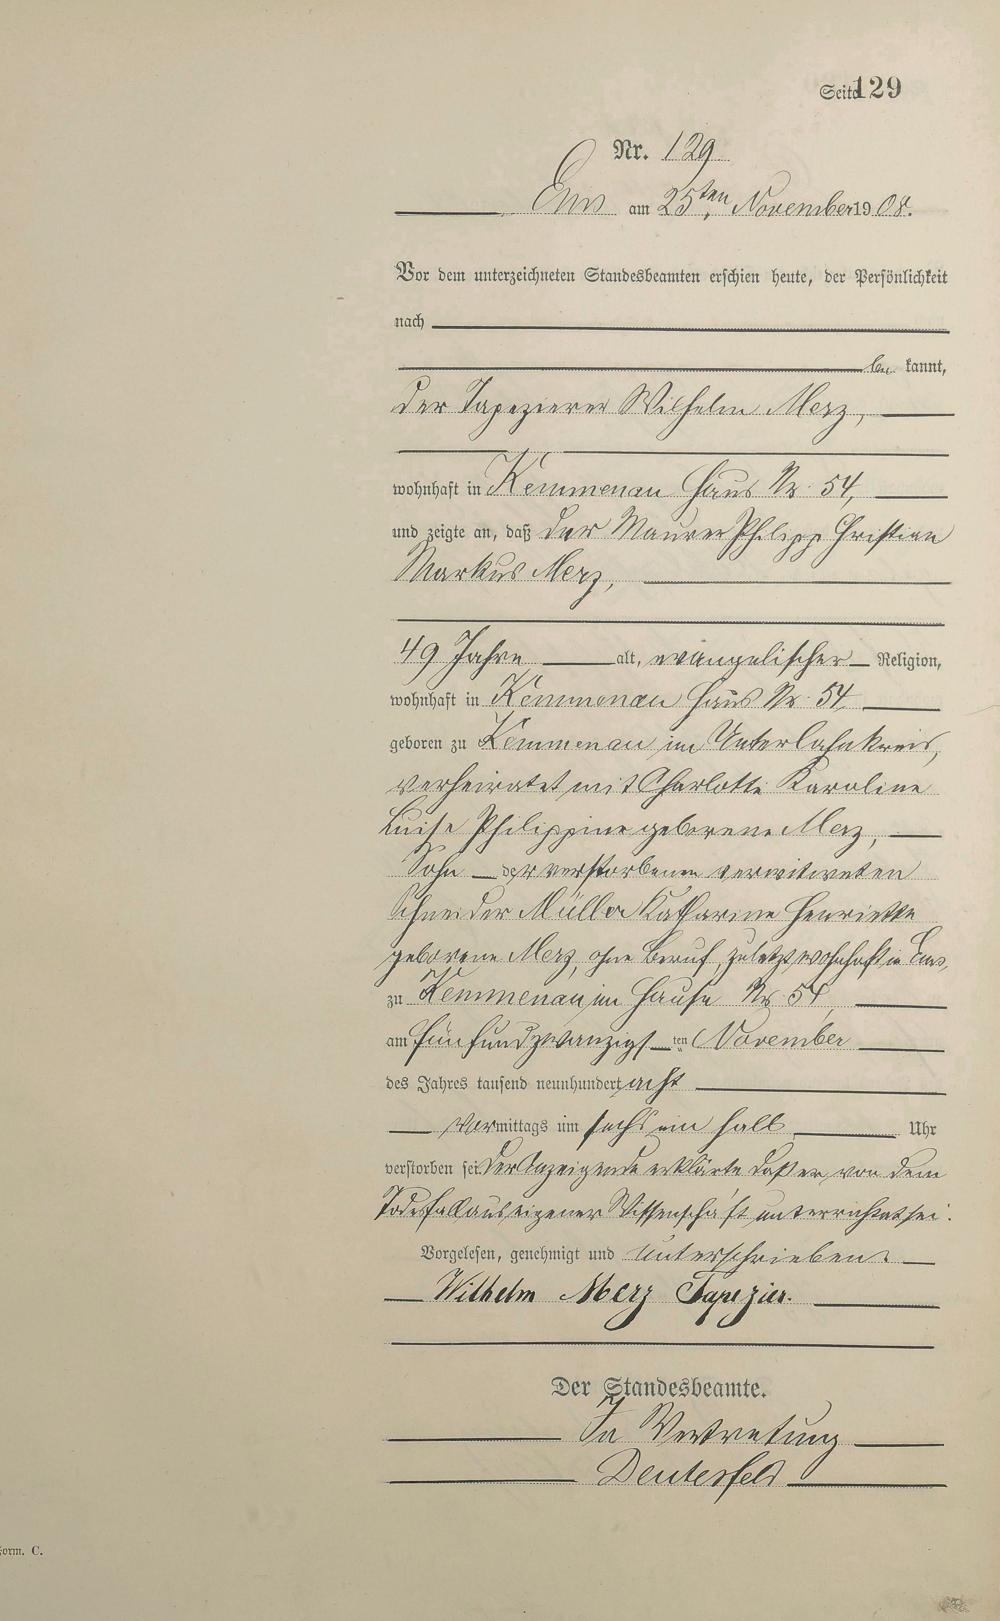 Seite 129
Nr. 129
Ems am 25ten November 1908.
Vor dem unterzeichneten Standesbeamten erschien heute, der Persönlichkeit
nach
be kannt,
der Tapezierer Wilhelm Merz,
wohnhaft in Kemmenau Haus Nr. 54,
und zeigte an, daß der Maurer Philipp Christian
Markus Merz,
49 Jahre alt, evangelischer Religion,
wohnhaft in Kemmenau Haus Nr. 54
geboren zu Kemmenau im Unterlahnkreis,
verheiratet mit Charlotte Karoline
Luise Philippine geborene Merz,
Sohn der verstorbenen verwitweten
Schneider Müller Katharine Henriette
geborene Merz, ohne Beruf, zuletzt wohnhaft in Ems,
zu Kemmenau im Hause Nr. 54,
am fünfundzwanzigsten November
des Jahres tausend neunhundert acht
vormittags um sechs ein halb Uhr
verstorben sei. Der Anzeigende erklärte daß er von dem
Todesfall aus eigener Wissenschaft unterrichtet sei.
Vorgelesen, genehmigt und unterschrieben.
Wilhelm Merz Tapezier.
Der Standesbeamte.
In Vertretung
Form. C.